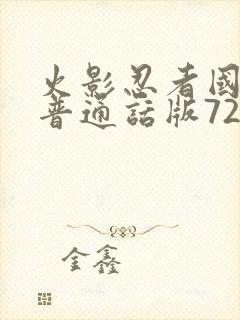 火影忍者國
普通話版72
金鑫